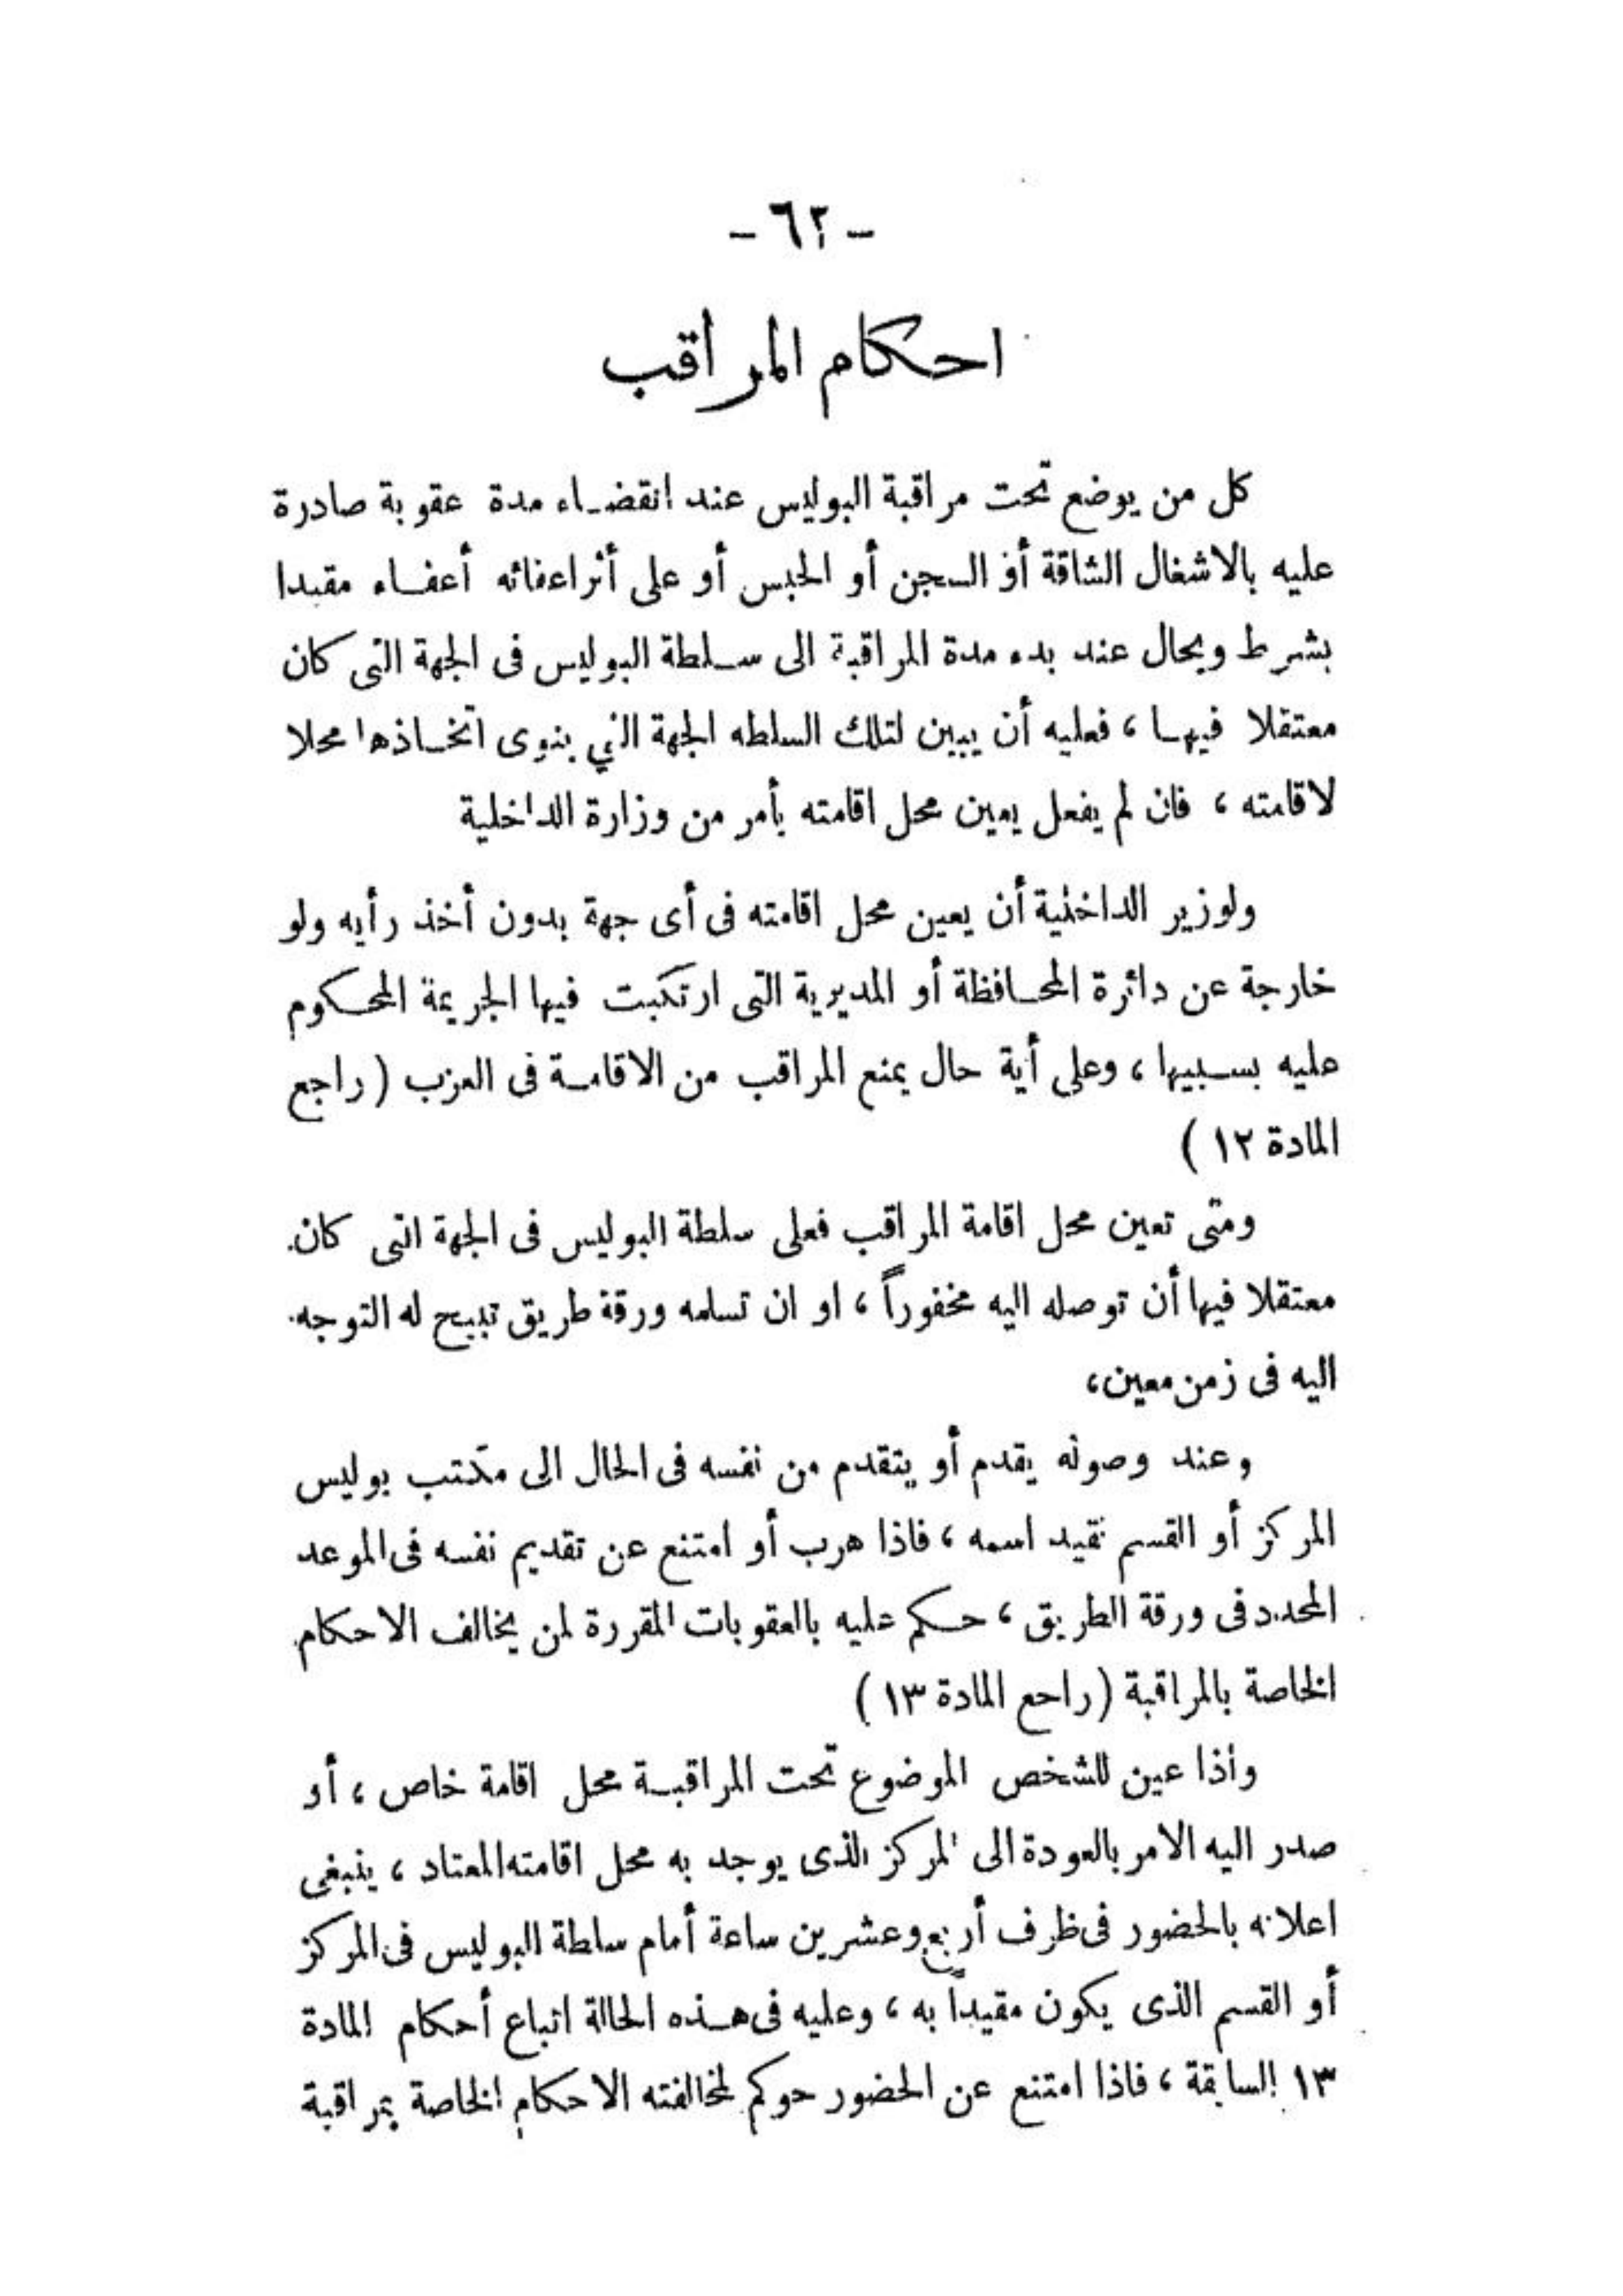 - ٦٢ -
احكام المراقب
كل من يوضع تحت مراقبة البوليس عند انقضاء مدة عقوبة صادرة
عليه بالاشغال الشاقة أو السجن أو الحبس أو على أثر اعفائه أعفاء مقيدا
بشرط ويحال عند بدء مدة المراقبة الى سلطة البوليس فى الجهة التى كان
معتقلا فيها ، فعليه أن يبين لتلك السلطه الجهة التي ينوى اتخاذها محلا
لاقامته ، فان لم يفعل يعين محل اقامته بأمر من وزارة الداخلية
ولوزير الداخلية أن يعين محل اقامته فى أى جهة بدون أخذ رأيه ولو
خارجة عن دائرة المحافظة أو المديرية التى ارتكبت فيها الجريمة المحكوم
عليه بسببها ، وعلى أية حال يمنع المراقب من الاقامة فى العزب ( راجع
المادة ١٢ )
ومتى تعين محل اقامة المراقب فعلى سلطة البوليس فى الجهة التى كان
معتقلا فيها أن توصله اليه مخفوراً ، او ان تسلمه ورقة طريق تبيح له التوجه
اليه فى زمن معين ،
وعند وصوله يقدم أو يتقدم من نفسه فى الحال الى مكتب بوليس
المركز أو القسم لقيد اسمه ، فاذا هرب أو امتنع عن تقديم نفسه فى الموعد
المحدد فى ورقة الطريق ، حكم عليه بالعقوبات المقررة لمن يخالف الاحكام
الخاصة بالمراقبة ( راحع المادة ١٣ )
وأذا عين للشخص الموضوع تحت المراقبة محل اقامة خاص ، أو
صدر اليه الامر بالعودة الى المركز الذى يوجد به محل اقامته المعتاد ، ينبغى
اعلانه بالحضور فى ظرف أربع وعشرين ساعة أمام سلطة البوليس فى المركز
أو القسم الذى يكون مقيداً به ، وعليه فى هذه الحالة اتباع أحكام المادة
١٣ السابقة ، فاذا امتنع عن الحضور حوكم لمخالفته الاحكام الخاصة بمراقبة